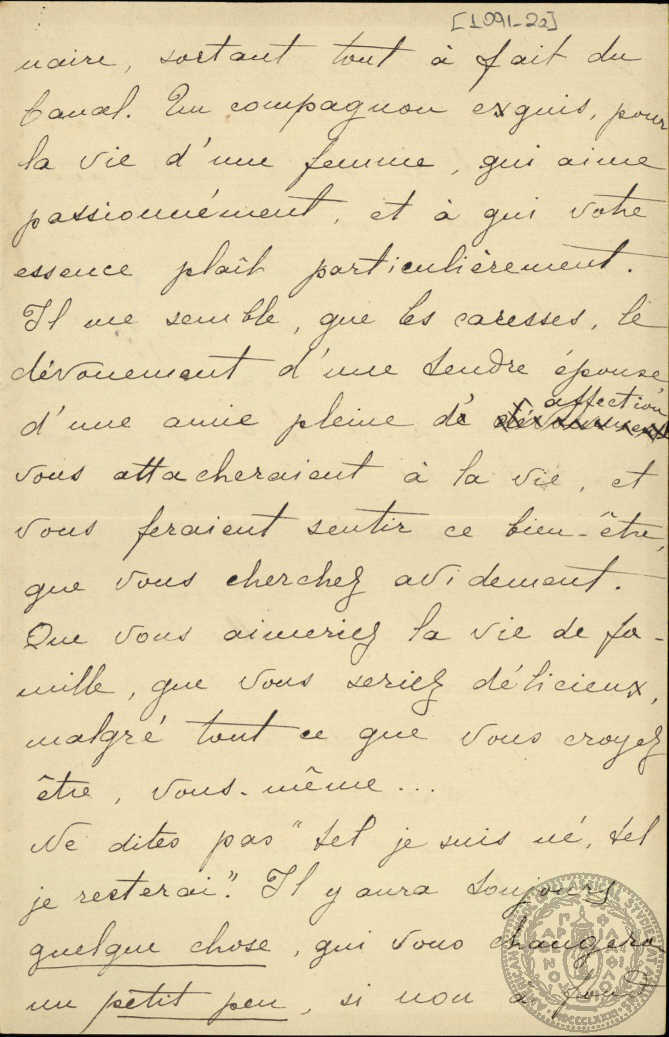 [1091-2a]
naire, sortant tout à fait du
banal. Un compagnon exquis, pour
la vie d'une femme, qui aime
passionnément, et à qui votre
essence plaît particulièrement.
Il me semble, que les caresses, le
dévouement d'une tendre épouse
affection
d'une amie pleine de
vous attacheraient à la vie, et
vous feraient sentir ce bien-être,
que vous cherchez avidement.
Que vous aimeriez la vie de fa-
mille, que vous seriez délicieux,
malgré tout ce que vous croyez
être, vous-même...
Ne dites pas "tel je suis né, tel
je resterai". Il y aura toujours
quelque chose, qui vous changera
un petit peu, si non à fond